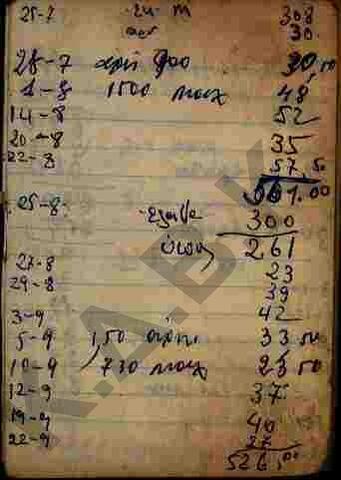 25-7 308
30
28-7 αρνί 900 30,50
1-8 1500 μοσχ 48
14-8 52
20-8 35
22-8 57,50
561.00
25-8 έλαβε 300
261
27-8 23
29-8 39
3-9 42
5-9 1,50 αρνί 33 50
10-9 730 μοσχ 23 50
12-9 37
19-9 40
22-9 27
526,00